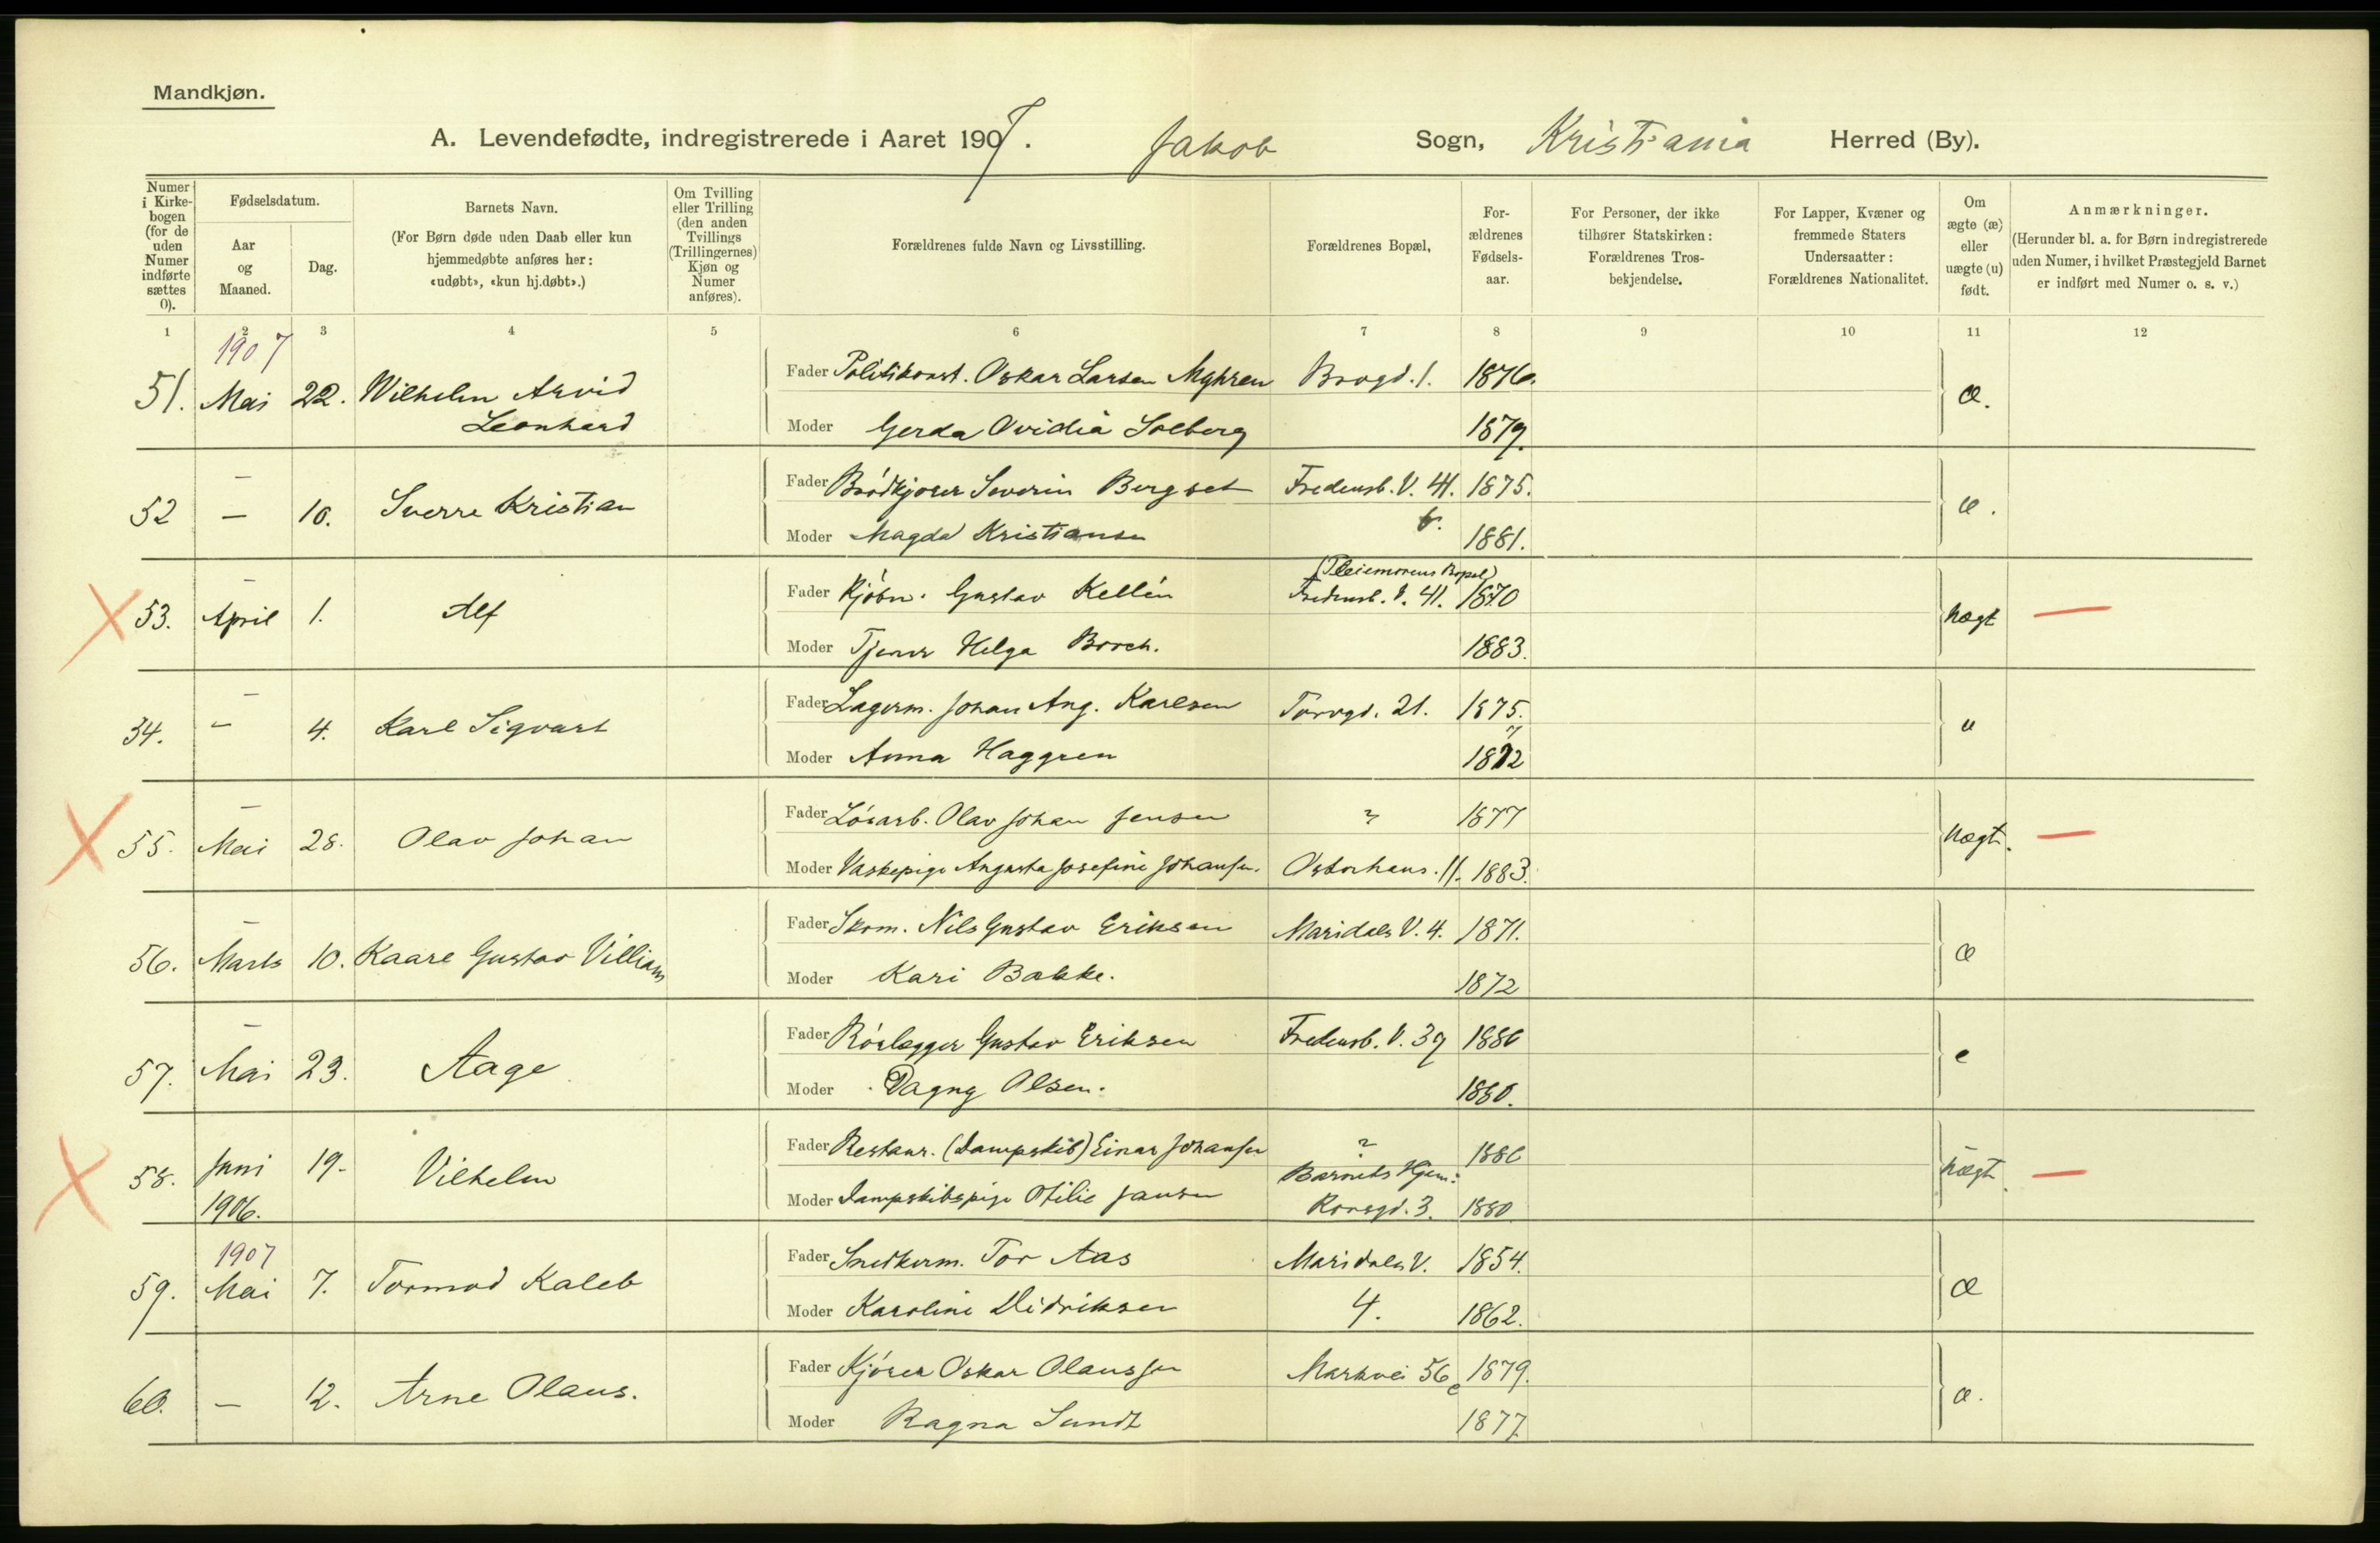 Mandkjøn.
A. Levendefødte, indregistrerede i Aaret 1907. Jakob Sogn, Kristiania Herred (By).
Numer i Kirkebogen (for de uden Numer indførte sættes 0).
Fødselsdatum.
Aar og Maaned.
Dag.
Barnets Navn.
(For Børn døde uden Daab eller kun hjemmedøbte anføres her: «udøbt», «kun hj.døbt».)
Om Tvilling eller Trilling (den anden Tvillings (Trillingernes) Kjøn og Numer anføres).
Forældrenes fulde Navn og Livsstilling.
Forældrenes Bopæl.
Forældrenes Fødselsaar.
For Personer, der ikke tilhører Statskirken: Forældrenes Trosbekjendelse.
For Lapper, Kvæner og fremmede Staters Undersaatter: Forældrenes Nationalitet.
Om ægte (æ) eller uægte (u) født.
Anmærkninger.
(Herunder bl. a. for Børn indregistrerede uden Numer, i hvilket Præstegjeld Barnet er indført med Numer o. s. v.)
1 2 3 4 5 6 7 8 9 10 11 12
1907
51. Mai 22. Wilhelm Arvid Leonhard
Fader Politikonst. Oskar Larsen Myhren Brogd. 1. 1876.
Moder Gerda Ovidia Solberg 1879.
æ.
52 — — 10. Sverre Kristian
Fader Brødkjører Severin Bergset Fredensb. V. 41. 1875.
Moder Magda Kristiansen b. 1881.
æ.
53. — April 1. Alf
(Pleiemorens Bopel)
Fader Kjøbm. Gustav Kellén Fredensb. V. 41. 1870
Moder Tjener Helga Borch. 1883.
uægt —
54. — — 4. Karl Sigvart
Fader Lagerm. Johan Aug. Karlsen Torvgd. 21. 1875.
Moder Anna Haggren 1872
æ
55. — Mai 28. Olav Johan
Fader Løsarb. Olav Johan Jensen ? 1877
Moder Vaskepige Augusta Josefine Johansen. Osterhaus. 11. 1883.
uægt. —
56. — Marts 10. Kaare Gustav Villiam
Fader Skom. Nils Gustav Eriksen Maridals V. 4. 1871.
Moder Kari Bakke. 1872
æ
57. — Mai 23. Aage
Fader Rørlægger Gustav Eriksen Fredensb. V. 39 1880
Moder Dagny Olsen. 1880.
æ
58. Juni 1906. 19. Vilhelm
Fader Restaur. (Dampskib) Einar Johansen ? 1880
Moder Dampskibspige Otilie Jansen Barnets Hjem: Korsgd. 3. 1880
uægt. —
1907
59. Mai 7. Tormod Kaleb
Fader Snedkerm. Tor Aas Maridals V. 1854.
Moder Karoline Didriksen 4. 1862.
æ
60. — 12. Arne Olaus.
Fader Kjører Oskar Olaussen Markvei 56 c 1879.
Moder Ragna Sundt 1877
æ.